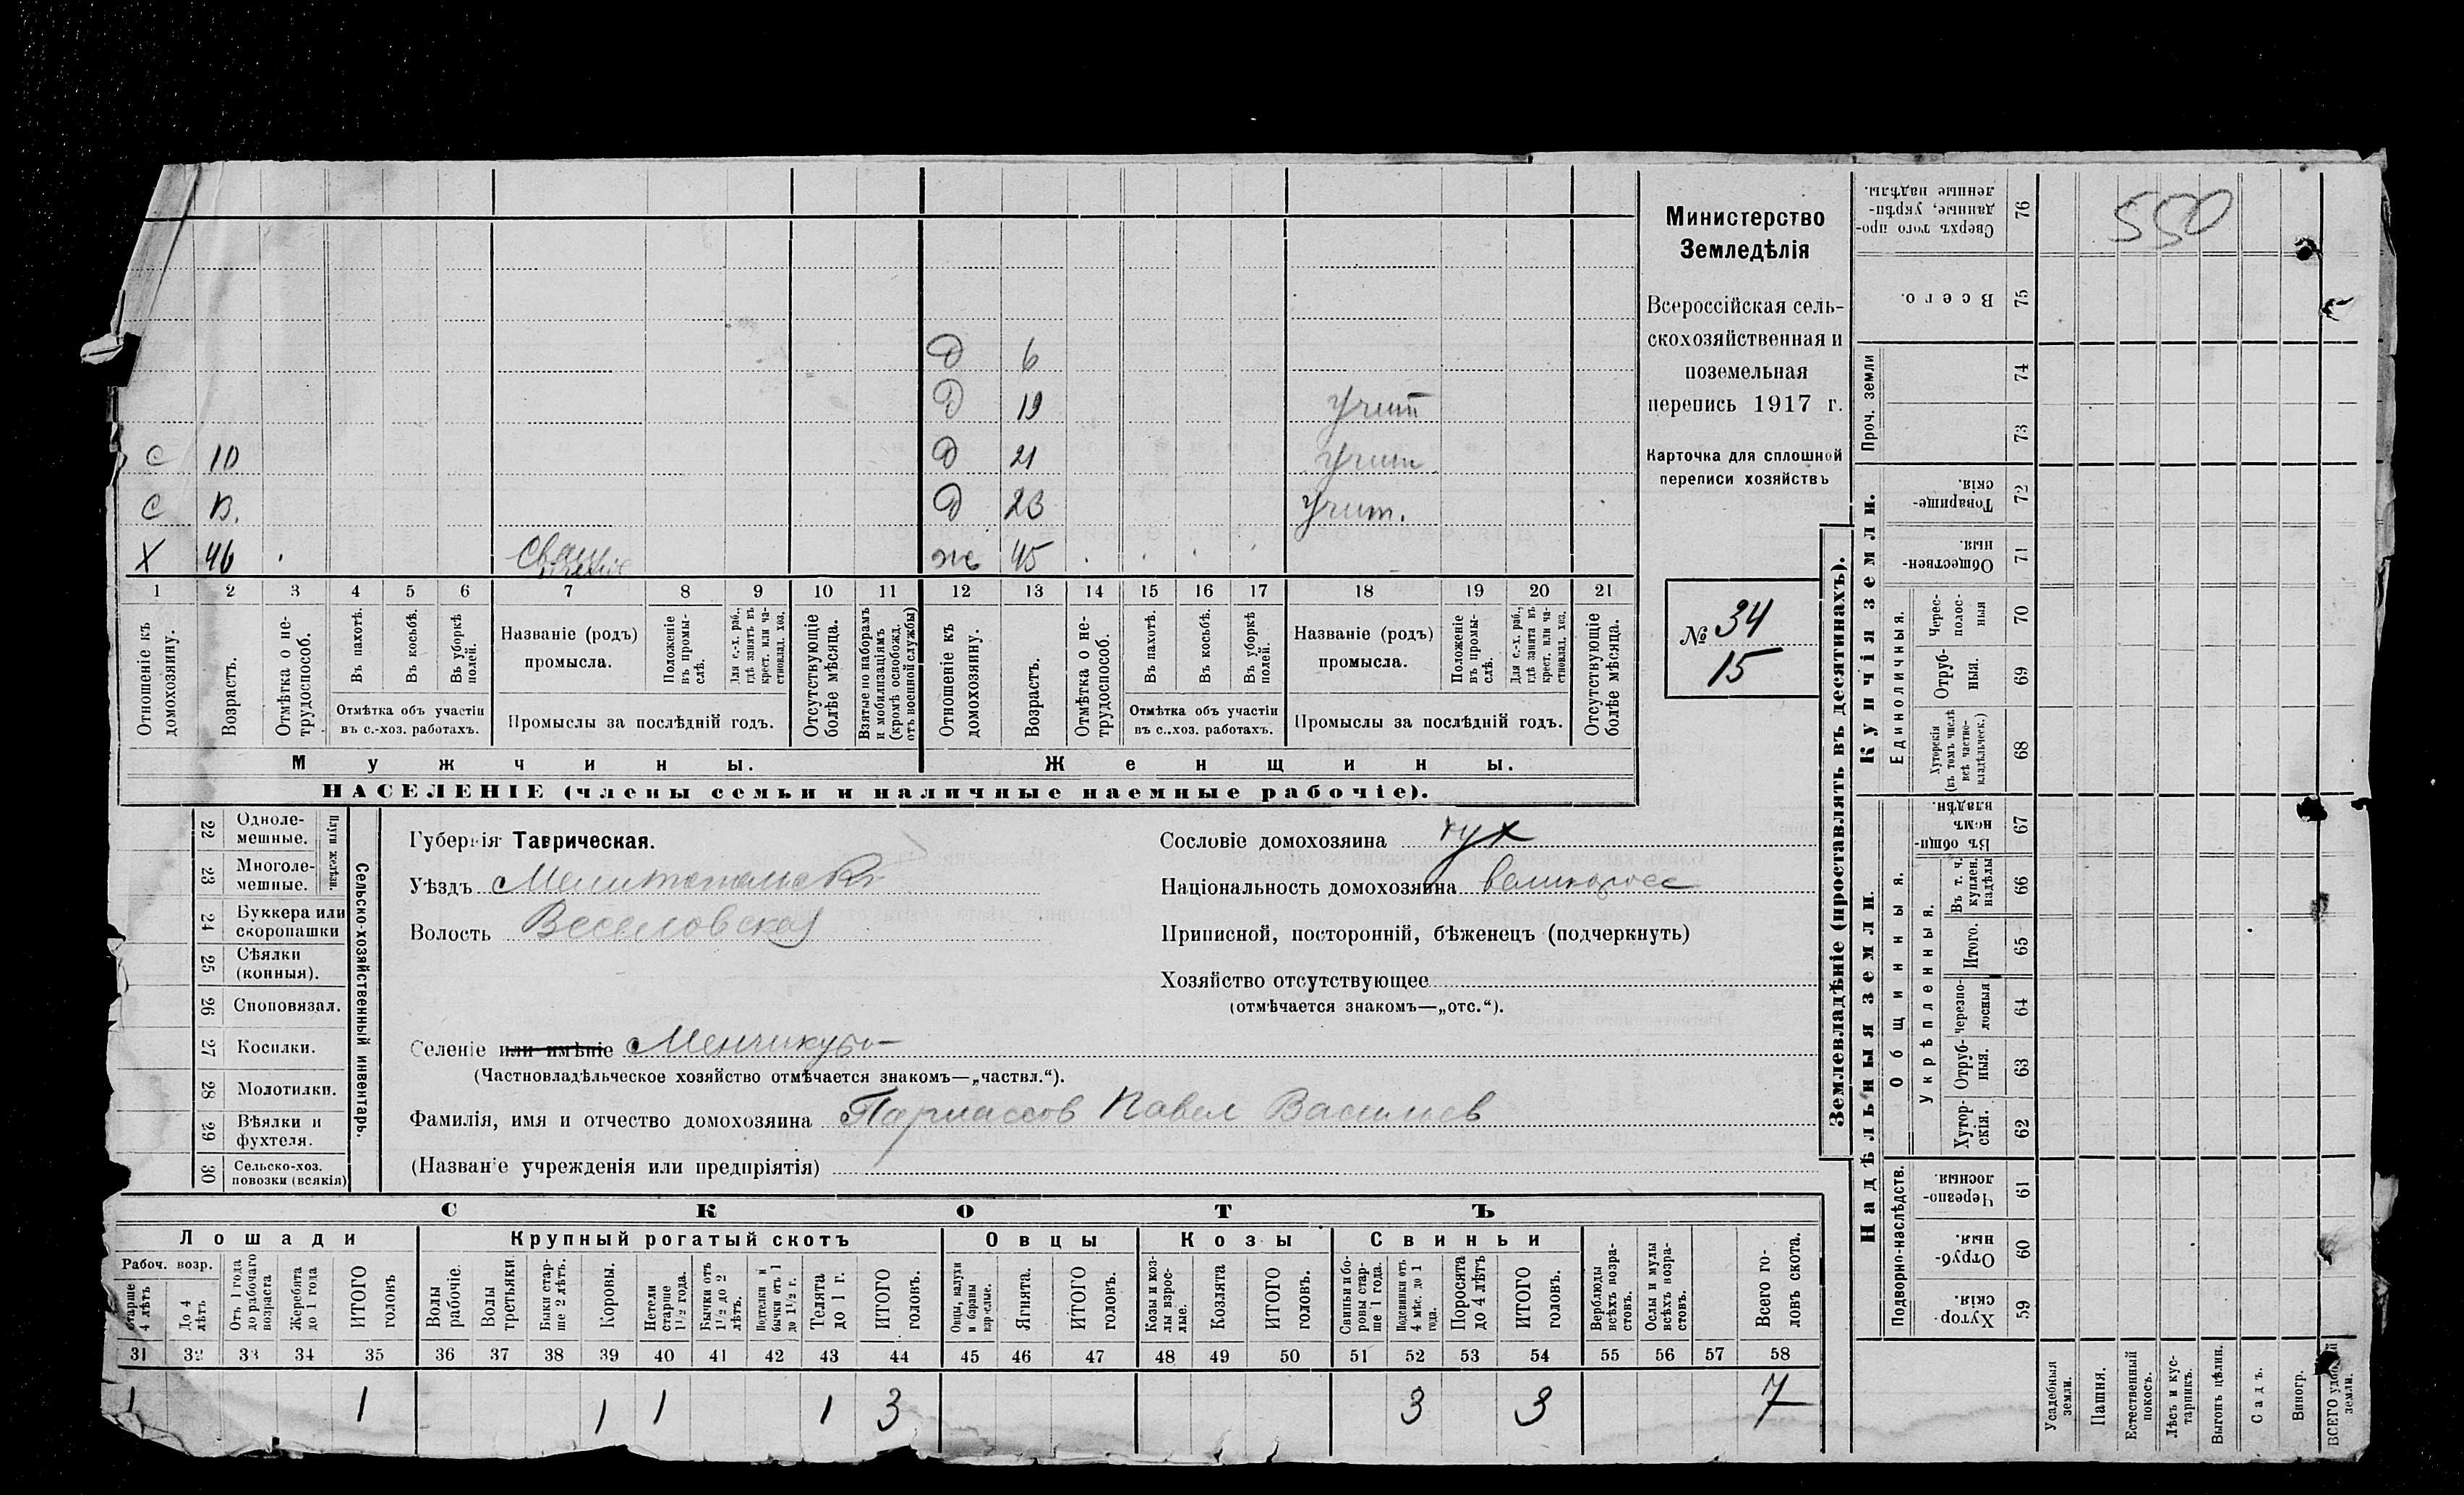 Министерство
Земледѣлія
Всероссійская сель-
скохозяйственная и
поземельная
перепись 1917 г.
Карточка для сплошной
переписи хозяйствъ
№ 34
15
550
Д 6
Д 19 Учит
С 10 Д 21 Учит
С В. Д 23 Учит.
Х 46 ж 45
1 2 3 4 5 6 7 8 9 10 11 12 13 14 15 16 17 18 19 20 21
Отношеніе къ домохозяину.
Возрастъ.
Отмѣтка о не-
трудоспособ.
Въ пахотѣ.
Въ косьбѣ.
Въ уборкѣ
полей.
Отмѣтка объ участіи
въ с.-хоз. работахъ.
Названіе (родъ)
промысла.
Положеніе
въ промы-
слѣ.
Для с.-х. раб.,
гдѣ занятъ въ
крест. или ча-
стновлад. хоз.
Промыслы за послѣдній годъ.
Отсутствующіе
болѣе мѣсяца.
Взятые по наборамъ
и мобилизаціямъ
(кромѣ освобожд.
отъ военной службы)
Отношеніе къ
домохозяину.
Возрастъ.
Отмѣтка о не-
трудоспособ.
Въ пахотѣ.
Въ косьбѣ.
Въ уборкѣ
полей.
Отмѣтка объ участіи
въ с..хоз. работахъ.
Названіе (родъ)
промысла.
Положеніе
въ промы-
слѣ.
Для с.-х. раб.,
гдѣ занята въ
крест. или ча-
стновлад. хоз.
Промыслы за послѣдній годъ.
Отсутствующіе
болѣе мѣсяца.
Мужчины. Женщины.
НАСЕЛЕНІЕ (члены семьи и наличные наемные рабочіе).
Сельско-хозяйственный инвентарь.
Плуги желѣзн.
22 Одноле-
мешные.
23 Многоле-
мешные.
24 Буккера или
скоропашки
25 Сѣялки
(конныя).
26 Сноповязал.
27 Косилки.
28 Молотилки.
29 Вѣялки и
фухтеля.
30 Сельско-хоз.
повозки (всякія)
Губернія Таврическая.
Уѣздъ Мелитопольскъ
Волость Веселовская
Селеніе или имѣніе Менчикуво
(Частновладѣльческое хозяйство отмѣчается знакомъ—„частвл.“).
Фамилія, имя и отчество домохозяина Парнассов Павел Васильев
(Названіе учрежденія или предпріятія)
Сословіе домохозяина дух
Національность домохозяина великоросс
Приписной, посторонній, бѣженецъ (подчеркнуть)
Хозяйство отсутствующее
(отмѣчается знакомъ—„отс.“).
СКОТЪ
Лошади Крупный рогатый скотъ Овцы Козы Свиньи
Рабоч. возр.
старше
4 лѣтъ
До 4
лѣтъ
Отъ 1 года
до рабочаго
возраста
Жеребята
до 1 года
ИТОГО
головъ
Волы
рабочіе.
Волы
третьяки
Быки стар-
ше 2 лѣтъ.
Коровы.
Нетели
старше
1½ года.
Бычки отъ
1½ до 2
лѣтъ.
Подтелки и
бычки отъ 1
до 1½ г.
Телята
до 1 г.
ИТОГО
головъ.
Овцы, валухи
и бараны
взрослые.
Ягнята.
ИТОГО
головъ.
Козы и коз-
лы взрос-
лые.
Козлята
ИТОГО
головъ.
Свиньи и бо-
ровы стар-
ше 1 года.
Подсвинки отъ
4 мѣс. до 1
года.
Поросята
до 4 лѣтъ
ИТОГО
головъ.
Верблюды
всѣхъ возра-
стовъ.
Ослы и мулы
всѣхъ возра-
стовъ.
Всего го-
ловъ скота.
31 32 33 34 35 36 37 38 39 40 41 42 43 44 45 46 47 48 49 50 51 52 53 54 55 56 57 58
1 1 1 1 1 3 3 3 7
Землевладѣніе (проставлять въ десятинахъ).
Надѣльныя земли. Купчія земли. Проч. земли
Подворно-наслѣдств.
Общинныя.
Укрѣпленныя.
Единоличныя.
Сверхъ того про-
данные, укрѣп-
ленные надѣлы.
76
Всего.
75
74
73
Товарище-
скія.
72
Обществен-
ныя.
71
Черес-
полос-
ныя
70
Отруб-
ныя.
69
Хуторскія
(въ томъ числѣ
всѣ частно-
владѣльческ.)
68
Въ общи-
номъ
владѣн.
67
Въ т. ч.
куплен.
надѣлы
66
Итого.
65
Черезпо-
лосныя
64
Отруб-
ныя.
63
Хутор-
скія.
62
Черезпо-
лосныя.
61
Отруб-
ныя.
60
Хутор-
скія.
59
Усадебныя
земли.
Пашня.
Естественный
покосъ.
Лѣсъ и кус-
тарникъ.
Выгонъ цѣлин.
Садъ.
Виногр.
ВСЕГО удобной
земли.